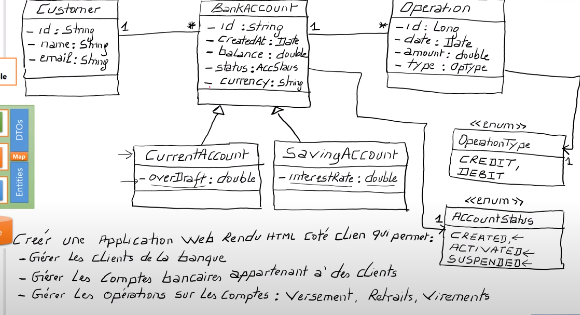 Customer
- id : String
- name: String
- email: String
1
*
BankAccount
- id : String
- CreatedAt: Date
- balance: double
- status: AccStaus
- currency: String
1
*
Operation
- id : Long
- date : Date
- amount: double
- type : OpType
CurrentAccount
- overDraft : double
SavingAccount
- interestRate : double
<<enum>>
OperationType
CREDIT,
DEBIT
1
<<enum>>
AccountStatus
CREATED,
ACTIVATED
SUSPENDED
1
DTOs
Map
Entities
Créér une Application Web Rendu HTML Coté Clien qui permet:
- Gérer Les clients de la banque
- Gérer Les Comptes bancaires appartenant à des clients
- Gérer Les opérations sur Les Comptes : Versement, Retraits, Virements